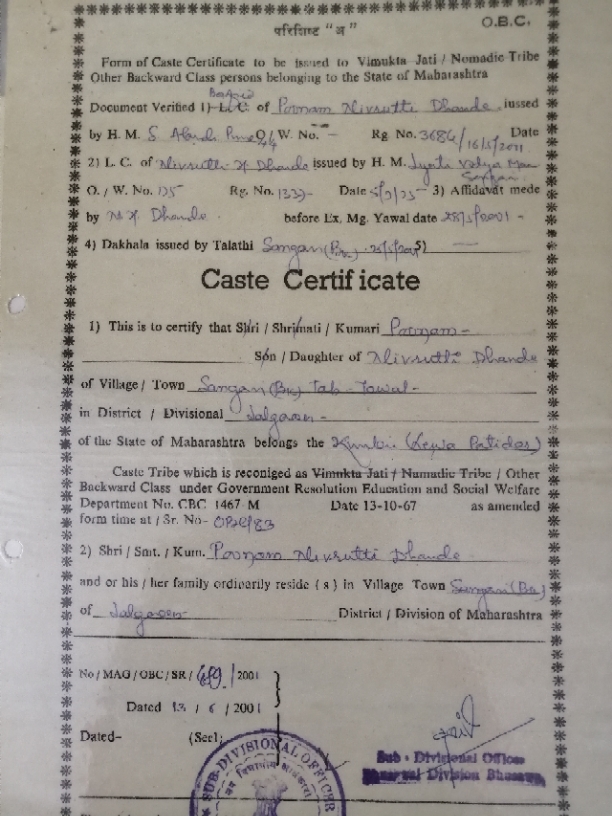 O.B.C.
परिशिष्ट "अ"
Form of Caste Certificate to be issued to Vimukta Jati / Nomadic Tribe
Other Backward Class persons belonging to the State of Maharashtra
Document Verified 1) L.C. of Poonam Nivrutti Dhande iussed
by H. M. O / W. No. - Rg No. 3684/ Date
2) L. C. of Nivrutti Dhande issued by H. M. Jyoti Vidya
O. / W. No. 125 Rg. No. 1339- Date 3) Affidavat mede
by Dhande before Ex. Mg. Yawal date
4) Dakhala issued by Talathi 5) —
Caste Certificate
1) This is to certify that Shri / Shrimati / Kumari Poonam -
Son / Daughter of Nivrutti Dhande
of Village / Town
in District / Divisional Jalgaon -
of the State of Maharashtra belongs the Kunbi (Lewa Patidar)
Caste Tribe which is reconiged as Vimukta Jati / Numadic Tribe / Other
Backward Class under Government Resolution Education and Social Welfare
Department No. CBC 1467 M Date 13-10-67 as amended
form time at / Sr. No- OBC/83
2) Shri / Smt. / Kum. Poonam Nivrutti Dhande
and or his / her family ordinarily reside ( s ) in Village Town
of Jalgaon District / Division of Maharashtra
No / MAG / OBC / SR / / 2001
Dated 13 / 6 / 2001
Dated- (Seel;
SUB-DIVISIONAL OFFICER
Sub - Divisional Officer
Bhusawal Division Bhusawal